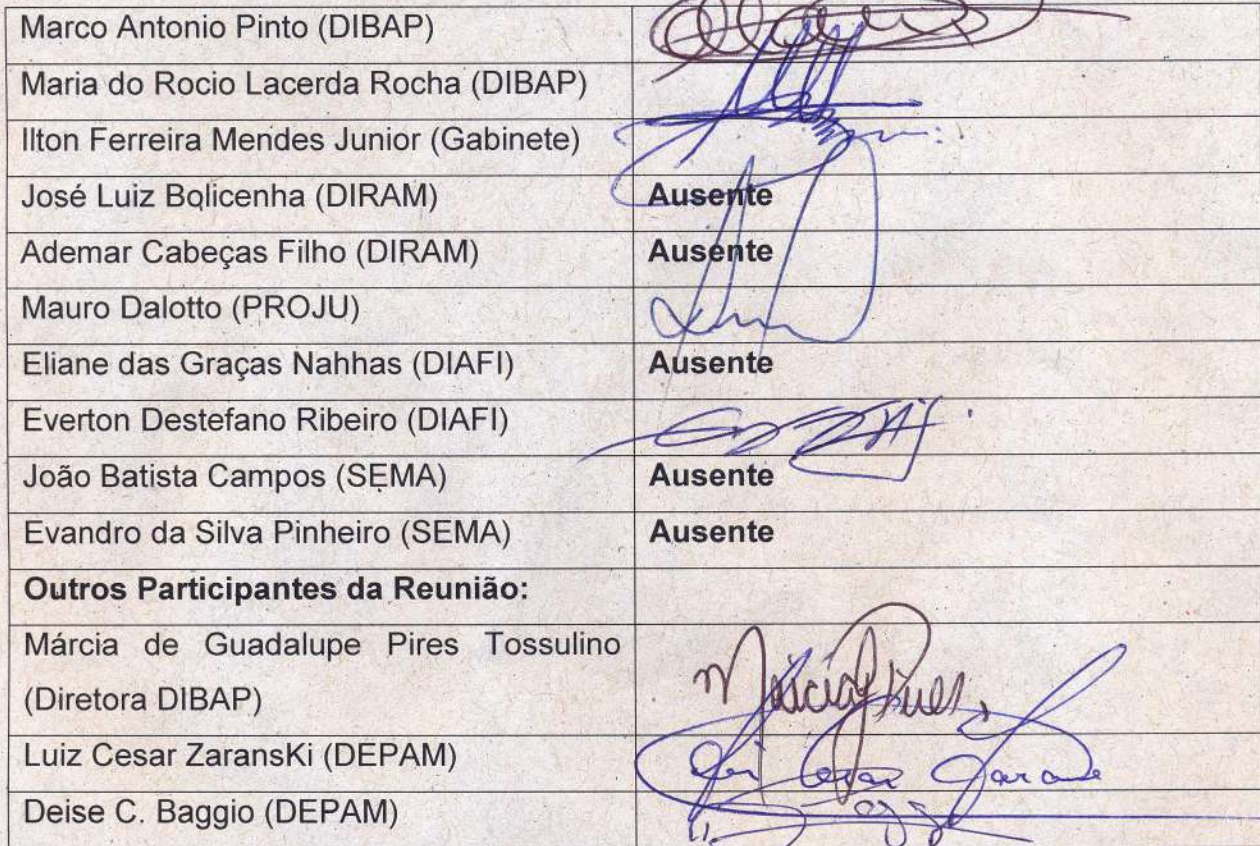 Marco Antonio Pinto (DIBAP)
Maria do Rocio Lacerda Rocha (DIBAP)
Ilton Ferreira Mendes Junior (Gabinete)
José Luiz Bolicenha (DIRAM) Ausente
Ademar Cabeças Filho (DIRAM) Ausente
Mauro Dalotto (PROJU)
Eliane das Graças Nahhas (DIAFI) Ausente
Everton Destefano Ribeiro (DIAFI)
João Batista Campos (SEMA) Ausente
Evandro da Silva Pinheiro (SEMA) Ausente
Outros Participantes da Reunião:
Márcia de Guadalupe Pires Tossulino
(Diretora DIBAP)
Luiz Cesar ZaransKi (DEPAM)
Deise C. Baggio (DEPAM)